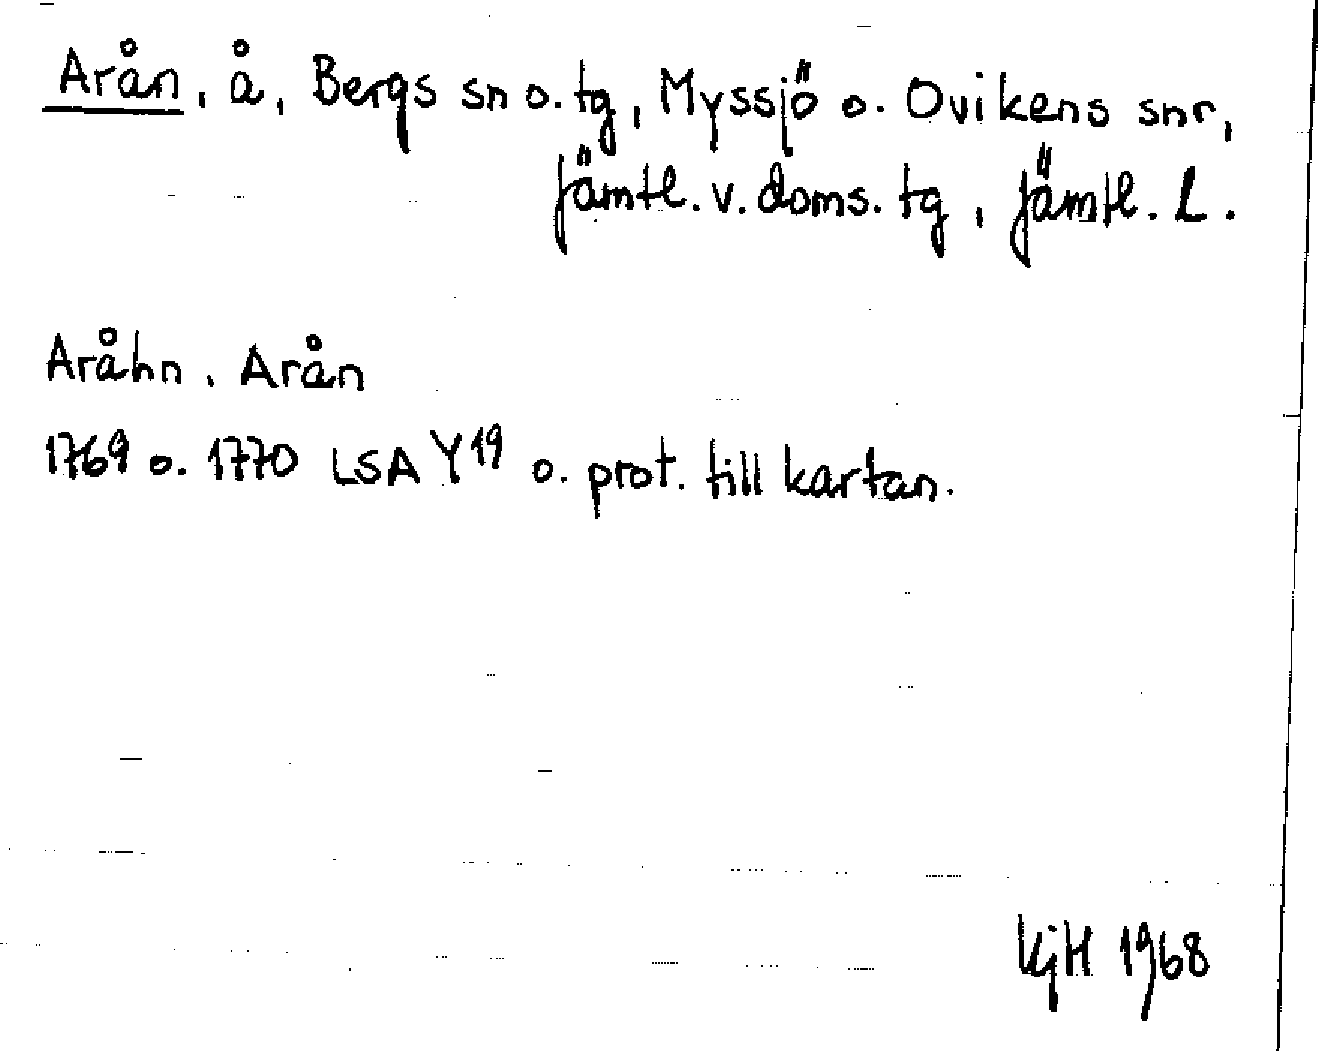 Arån, å, Bergs sn o. tg, Myssjö o. Ovikens snr,
Jämtl. v. doms. tg, Jämtl. L.
Aråhn, Arån
1769 o. 1770 LSA Y19 o. prot. till kartan.
KjH 1968